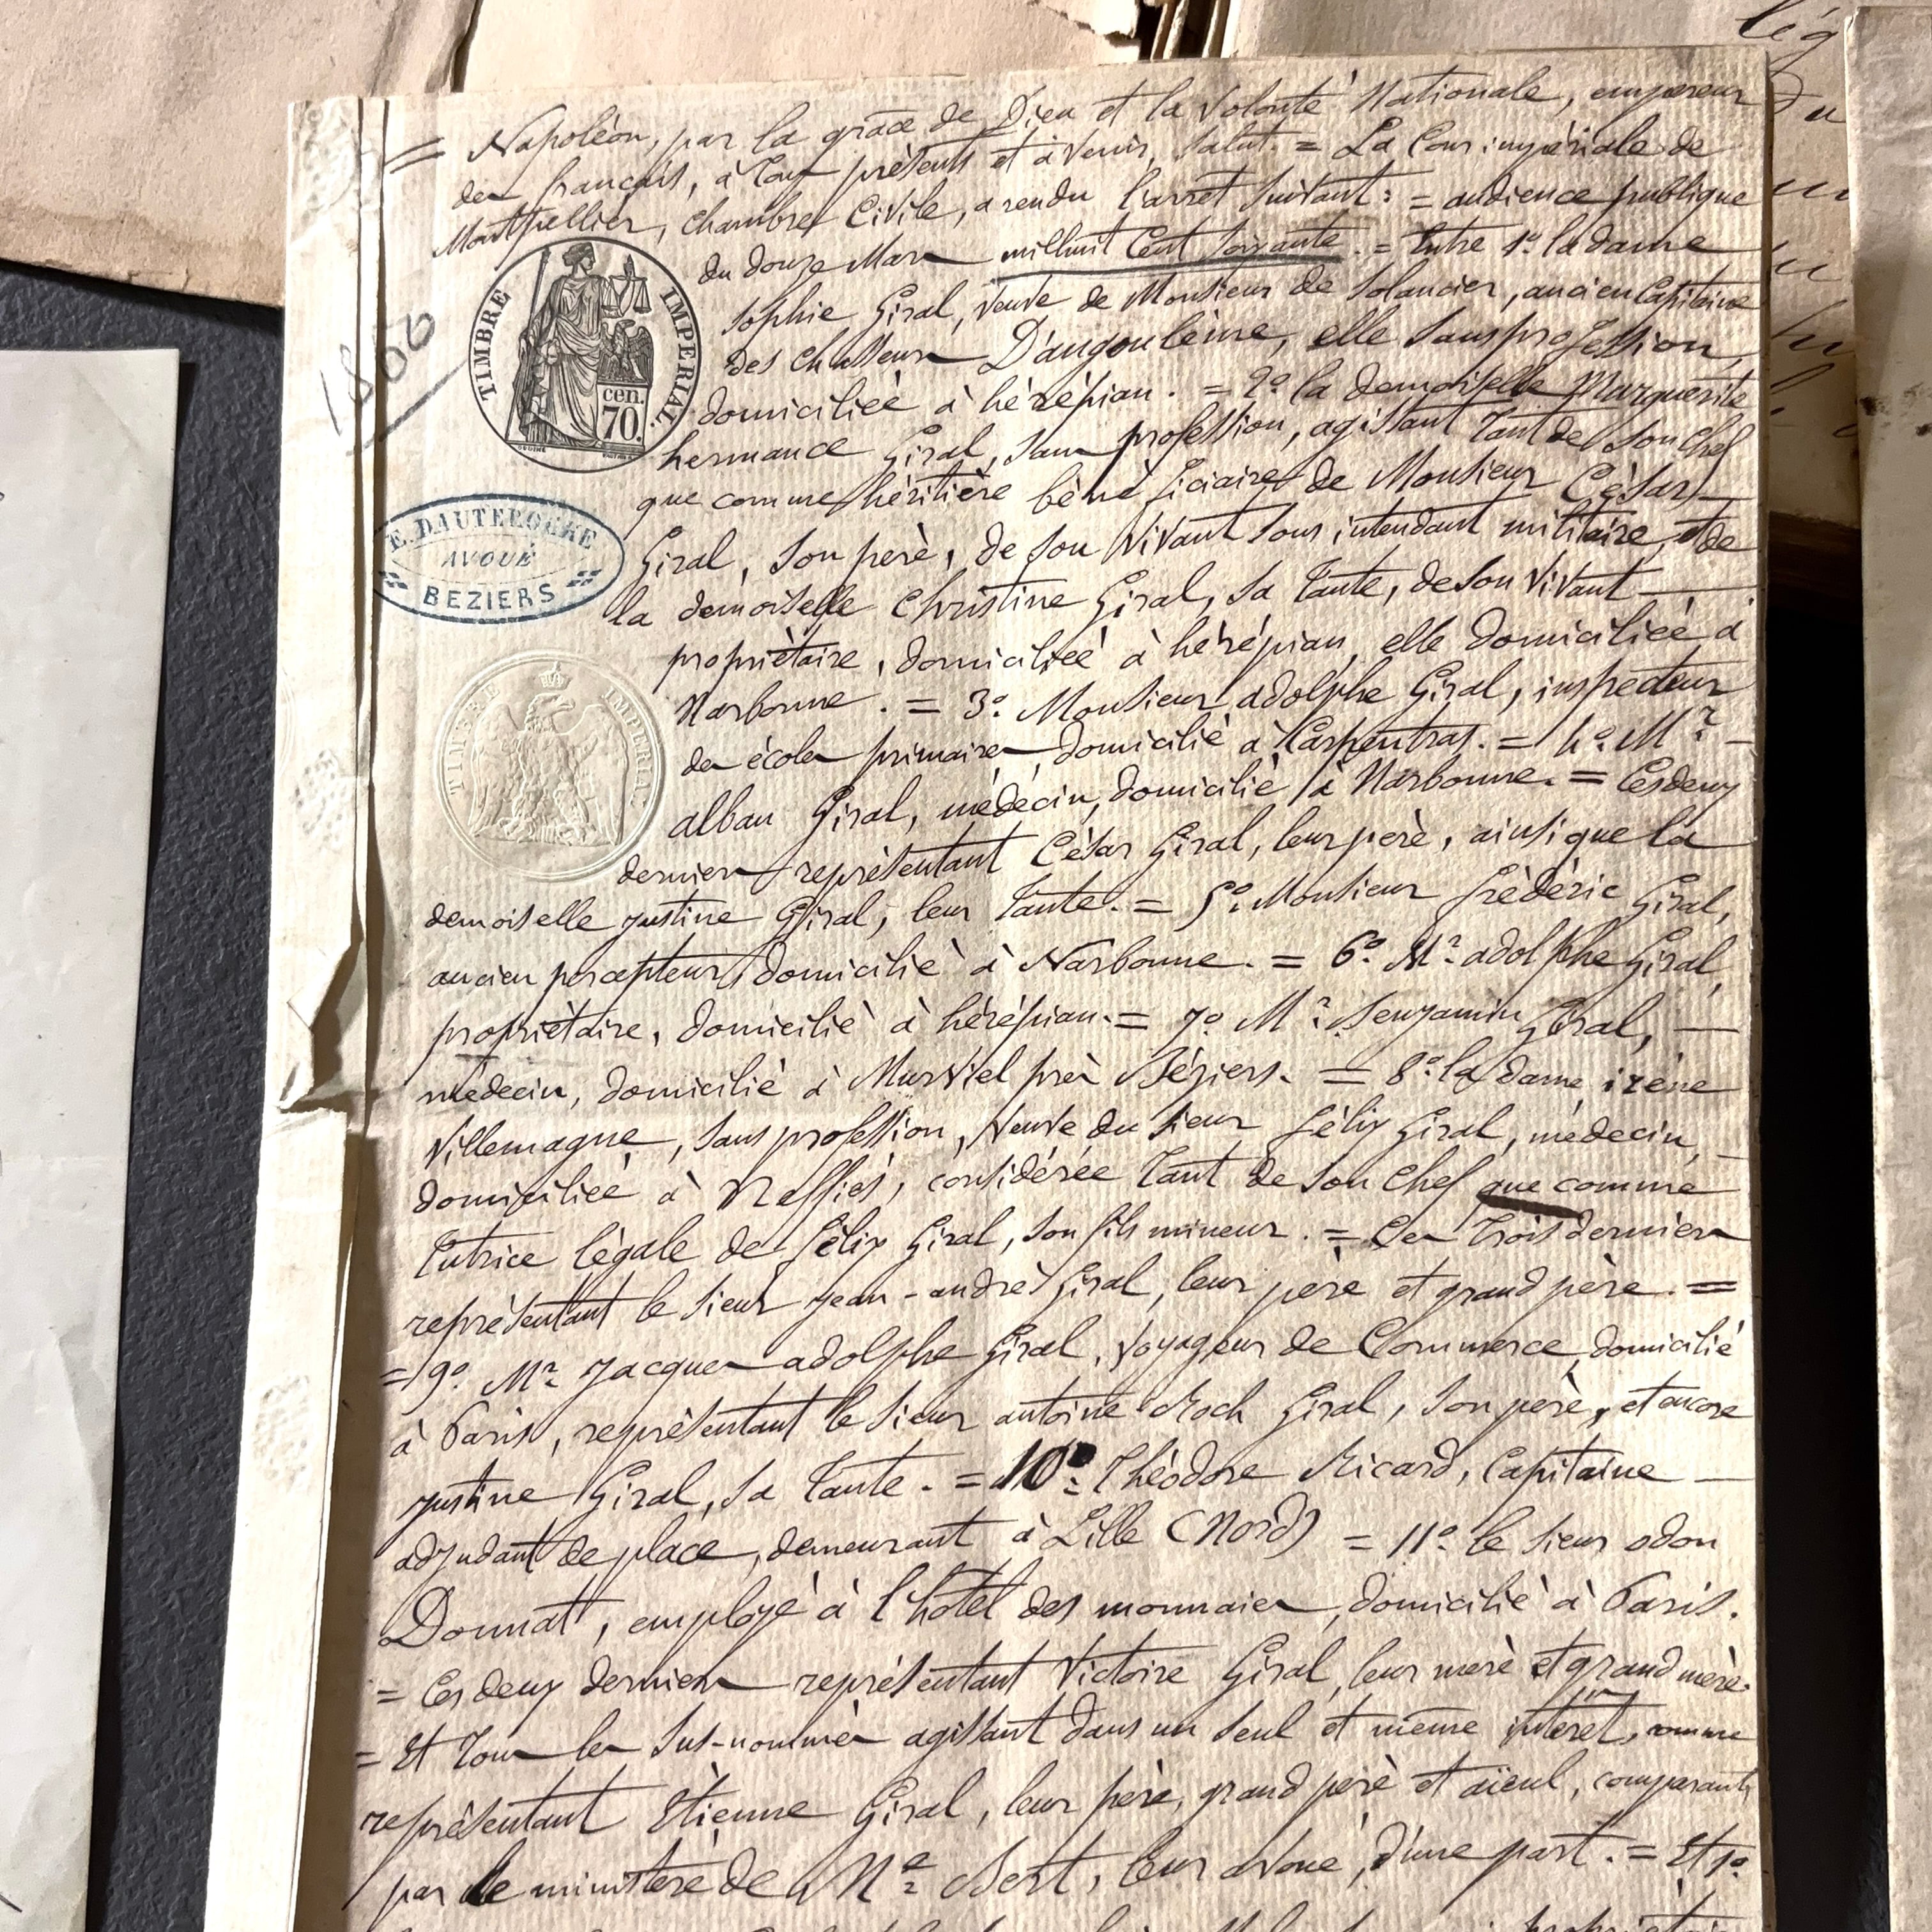 = Napoléon, par la grâce de Dieu et la Volonté Nationale, empereur
des français, à Tous présents et à venir, Salut. = La Cour impériale de
Montpellier, Chambre Civile, a rendu l'arrêt Suivant : = audience publique
du douze Mars mil huit Cent Soixante. = Entre 1º la dame
Sophie Giral, Veuve de Monsieur de Solancier, ancien Capitaine
des Chasseurs D'angoulème, elle Sans profession,
domiciliée à hérépian. = 2º la demoiselle Marguerite
hermance Giral, Sans profession, agissant Tant de Son Chef
que comme héritière bénéficiaire de Monsieur César
Giral, Son père, de Son Vivant Sous intendant militaire, et de
la demoiselle Christine Giral, Sa Tante, de Son Vivant —
propriétaire, domiciliée à hérépian, elle domiciliée à
Narbonne. = 3º. Monsieur adolphe Giral, inspecteur
des écoles primaires, domicilié à Carpentras. = 4º. Mr —
alban Giral, médecin, domicilié à Narbonne. = Ces deux
derniers représentant César Giral, leur père, ainsi que la
demoiselle justine Giral, leur Tante. = 5º. Monsieur frédéric Giral,
ancien percepteur, domicilié à Narbonne. = 6º Mr adolphe Giral,
propriétaire, domicilié à hérépian. = 7º Mr Benjamin Giral, —
médecin, domicilié à Murviel près Béziers. = 8º. la dame irène
Villemagne, Sans profession, Veuve du Sieur félix Giral, médecin, —
domiciliée à Neffiès, considérée Tant de Son Chef que comme
Tutrice légale de félix Giral, Son fils mineur. = Les Trois derniers
représentant le Sieur jean-andré Giral, leur père et grand père. =
= 9º. Mr Jacques adolphe Giral, Voyageur de Commerce, domicilié
à Paris, représentant le Sieur antoine Roch Giral, Son père, et encore
justine Giral, Sa Tante. = 10º Théodore Ricard, Capitaine —
adjudant de place, demeurant à Lille (Nord) = 11º. le Sieur odon
Donnat, employé à l'hôtel des monnaies, domicilié à Paris.
= Ces deux derniers représentant Victoire Giral, leur mère et grand mère.
= Et Tous les Sus-nommés agissant dans un Seul et même intérêt, comme
représentant Etienne Giral, leur père, grand père et aïeul, comparant
par le ministère de Me Bert, leur avoué, d'une part. = Et 1º
TIMBRE IMPERIAL.
cen.
70.
1860
E. DAUTEROCHE
AVOUÉ
BEZIERS
TIMBRE IMPERIAL